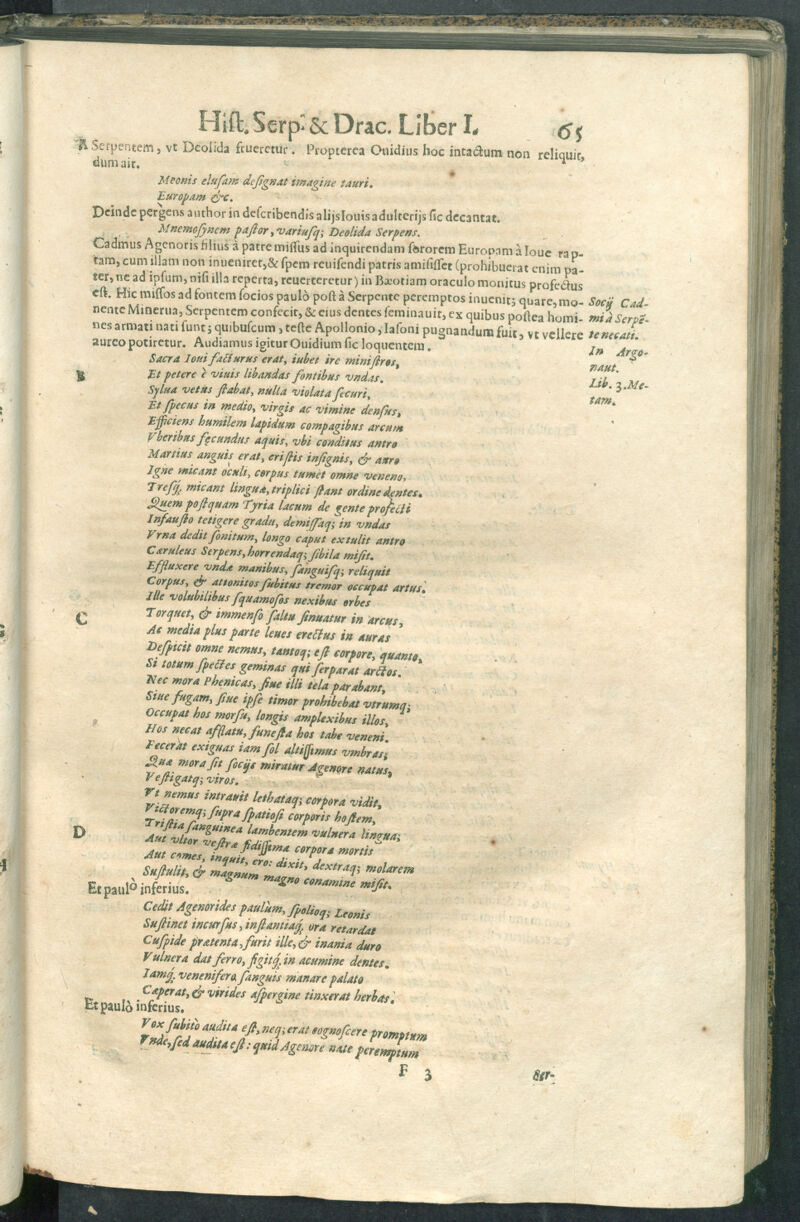 Hist. Serp: & Drac. Liber I. 65
A Serpentem, vt Deolida frueretur. Propterea Ouidius hoc intactum non reliquit,
dum ait.
Meonis elusam designat imagine tauri.
Europam &c.
Deinde pergens author in describendis alijs Iouis adulterijs sic decantat.
Mnemosynem pastor, variusq; Deolida Serpens.
Cadmus Agenoris filius à patre missus ad inquirendam sororem Europam à Ioue rap-
tam, cum illam non inueniret, & spem reuisendi patris amisisset (prohibuerat enim pa-
ter, ne ad ipsum, nisi illa reperta, reuerteretur) in Bæotiam oraculo monitus profectus
est. Hic missos ad fontem socios paulò post à Serpente peremptos inuenit; quare, mo-
nente Minerua, Serpentem confecit, & eius dentes seminauit, ex quibus postea homi-
nes armati nati sunt; quibuscum, teste Apollonio, Iasoni pugnandum fuit, vt vellere
aureo potiretur. Audiamus igitur Ouidium sic loquentem.
Socij Cad-
mi à Serpē-
te necati.
In Argo-
naut.
Lib. 3. Me-
tam.
Sacra Ioui facturus erat, iubet ire ministros,
B Et petere è viuis libandas fontibus vndas.
Sylua vetus stabat, nulla violata securi,
Et specus in medio, virgis ac vimine densus,
Efficiens humilem lapidum compagibus arcum
Vberibus fecundus aquis, vbi conditus antro
Martius anguis erat, cristis insignis, & auro
Igne micant oculi, corpus tumet omne veneno,
Tresq; micant linguæ, triplici stant ordine dentes.
Quem postquam Tyria lacum de gente profecti
Infausto tetigere gradu, demissaq; in vndas
Vrna dedit sonitum, longo caput extulit antro
Cæruleus Serpens, horrendaq; sibila misit.
Effluxere vndæ manibus, sanguisq; reliquit
Corpus, & attonitos subitus tremor occupat artus.
Ille volubilibus squamosos nexibus orbes
C Torquet, & immenso saltu sinuatur in arcus,
Ac media plus parte leues erectus in auras
Despicit omne nemus, tantoq; est corpore, quanto,
Si totum spectes geminas qui serparat arctos.
Nec mora Phenicas, siue illi tela parabant,
Siue fugam, siue ipse timor prohibebat vtrumq;
Occupat hos morsu, longis amplexibus illos,
Hos necat afflatu, funesta hos tabe veneni.
Fecerat exiguas iam sol altissimus vmbras;
Qua mora sit socijs miratur Agenore natus,
Vestigatq; viros.
Vt nemus intrauit lethataq; corpora vidit,
Victoremq; supra spatiosi corporis hostem,
Tristia sanguinea lambentem vulnera lingua;
D Aut vltor vestræ fidissima corpora mortis
Aut comes, inquit, ero: dixit, dextraq; molarem
Sustulit, & magnum magno conamine misit.
Et paulò inferius.
Cedit Agenorides paulùm, spolioq; Leonis
Sustinet incursus, instantiaq; ora retardat
Cuspide prætenta, furit ille, & inania duro
Vulnera dat ferro, figitq; in acumine dentes.
Iamq; venenifero sanguis manare palato
Cæperat, & virides aspergine tinxerat herbas.
Et paulò inferius.
Vox subitò audita est, neq; erat cognoscere promptum
Vnde, sed audita est: quid Agenore nate peremptum
F 3 Ser-